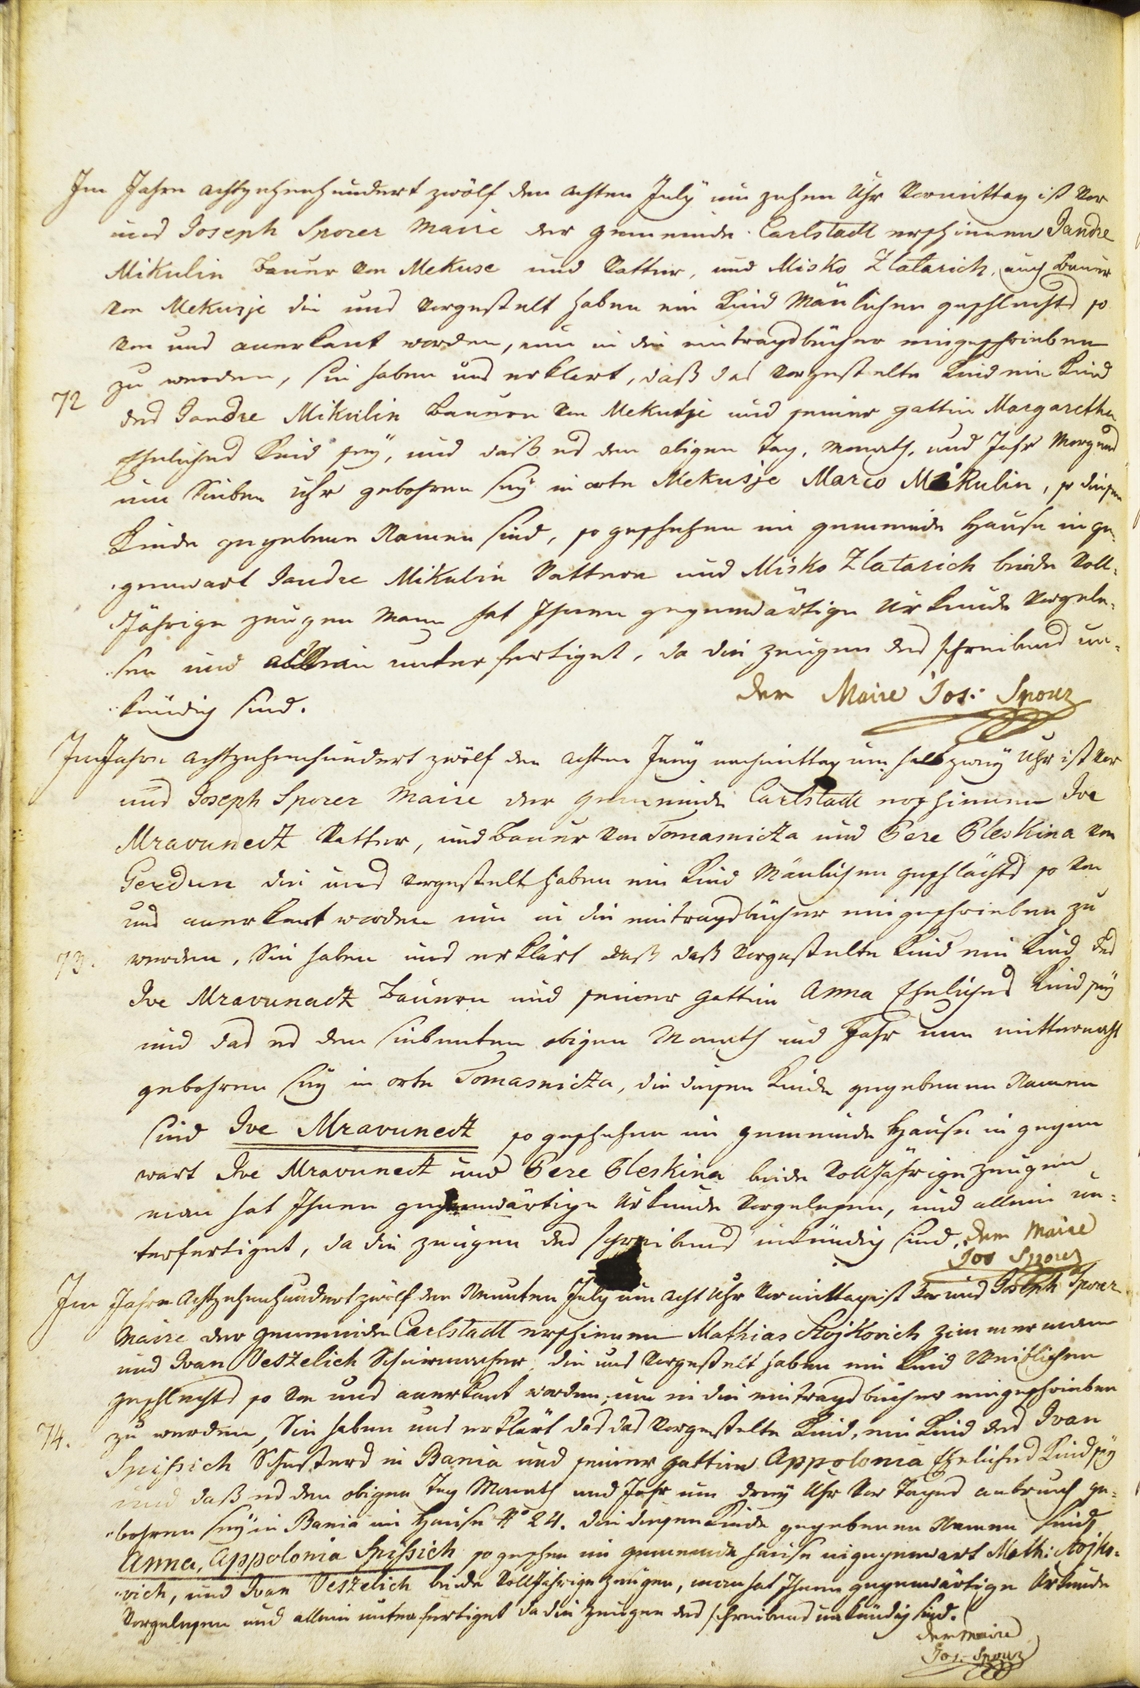 Im Jahre achtzehenhundert zwölf den achten July um zehen Uhr Vormittag ist vor
uns Joseph Sporer Maire der gemeinde Carlstadt erschienen Jandre
Mikulin Bauer von Mekuse und Vatter, und Misko Zlatarich, auch Bauer
von Mekusje die uns vorgestelt haben ein Kind Mänlichen geschlechts so
von uns anerkant worden, um in die eintragsbücher eingeschrieben
zu werden, sie haben uns erklärt, daß das vorgestelte Kind ein Kind
72
des Jandre Mikulin Bauern von Mekusje und seiner gattin Margaretha
Eheliches Kind seÿ, und daß es den obigen Tag, Monath, und Jahr Morgens
um Sieben Uhr gebohren seÿ in orte Mekusje Marco Mikulin, so diesem
Kinde gegebene Namen sind, so geschehen im gemeinde Hause in ge-
genwart Jandre Mikulin Vattern und Misko Zlatarich beide Voll-
Jährige zeugen Mann hat Ihnen gegenwärtige Urkunde vorgele-
sen und allein unterfertiget, da die zeugen des schreibens un-
kündig sind.
der Maire Jos: Sporer
Im Jahre achtzehenhundert zwölf den achten Juny nachmittag um halb zweÿ Uhr ist vor
uns Joseph Sporer Maire der gemeinde Carlstadt erschienen Ive
Mravunech Vatter, und Bauer von Tomasnicka und Pere Pleskina von
Gerdun die uns vorgestelt haben ein Kind Mänlichen geschlächts so von
uns anerkant worden um in die eintragsbücher eingeschrieben zu
73.
werden, Sie haben uns erklärt daß daß vorgestelte Kind ein Kind des
Ive Mravunach Bauern und seiner gattin Anna Eheliches Kind seÿ
und das es den siebenten obigen Monath und Jahr um mitternacht
gebohren seÿ in orte Tomasnicka, die diesem Kinde gegebenen Namen
sind Ive Mravunech so geschehen im gemeinde Hause in gegen
wart Ive Mravunech und Pere Pleskina beide Volljährige zeugen
man hat Ihnen gegenwärtige Urkunde vorgelesen, und allein un-
terfertiget, da die zeugen des schreibens unkündig sind, Der Maire
Jos Sporer
Im Jahre Achtzehenhundert zwölf den Neunten July um acht Uhr Vormittag ist vor uns Joseph Sporer
Maire der gemeinde Carlstadt erschienen Mathias Stojkovich Zimmermann
und Ivan Veszelich die uns vorgestelt haben ein Kind Weiblichen
geschlechts so von uns anerkant worden, um in die eintragsbücher eingeschrieben
74.
zu werden, Sie haben uns erklärt das das vorgestelte Kind, ein Kind des Ivan
Spissich Schusters in Bania und seiner gattin Appolonia Eheliches Kind seÿ
und daß es den obigen Tag Monath und Jahr um dreÿ Uhr vor Tages anbruch ge-
bohren seÿ in Bania im Hause No 24. die diesem Kinde gegebenen Namen sind
Anna, Appolonia Spissich so geschen im gemeinde hause in gegenwart Math: Stojko-
vich, und Ivan Veszelich beide Volljährige zeugen, man hat Ihnen gegenwärtige Urkunde
vorgelesen und allein unterfertiget da die zeugen des schreibens unkündig sind.
der Maire
Jos: Sporer